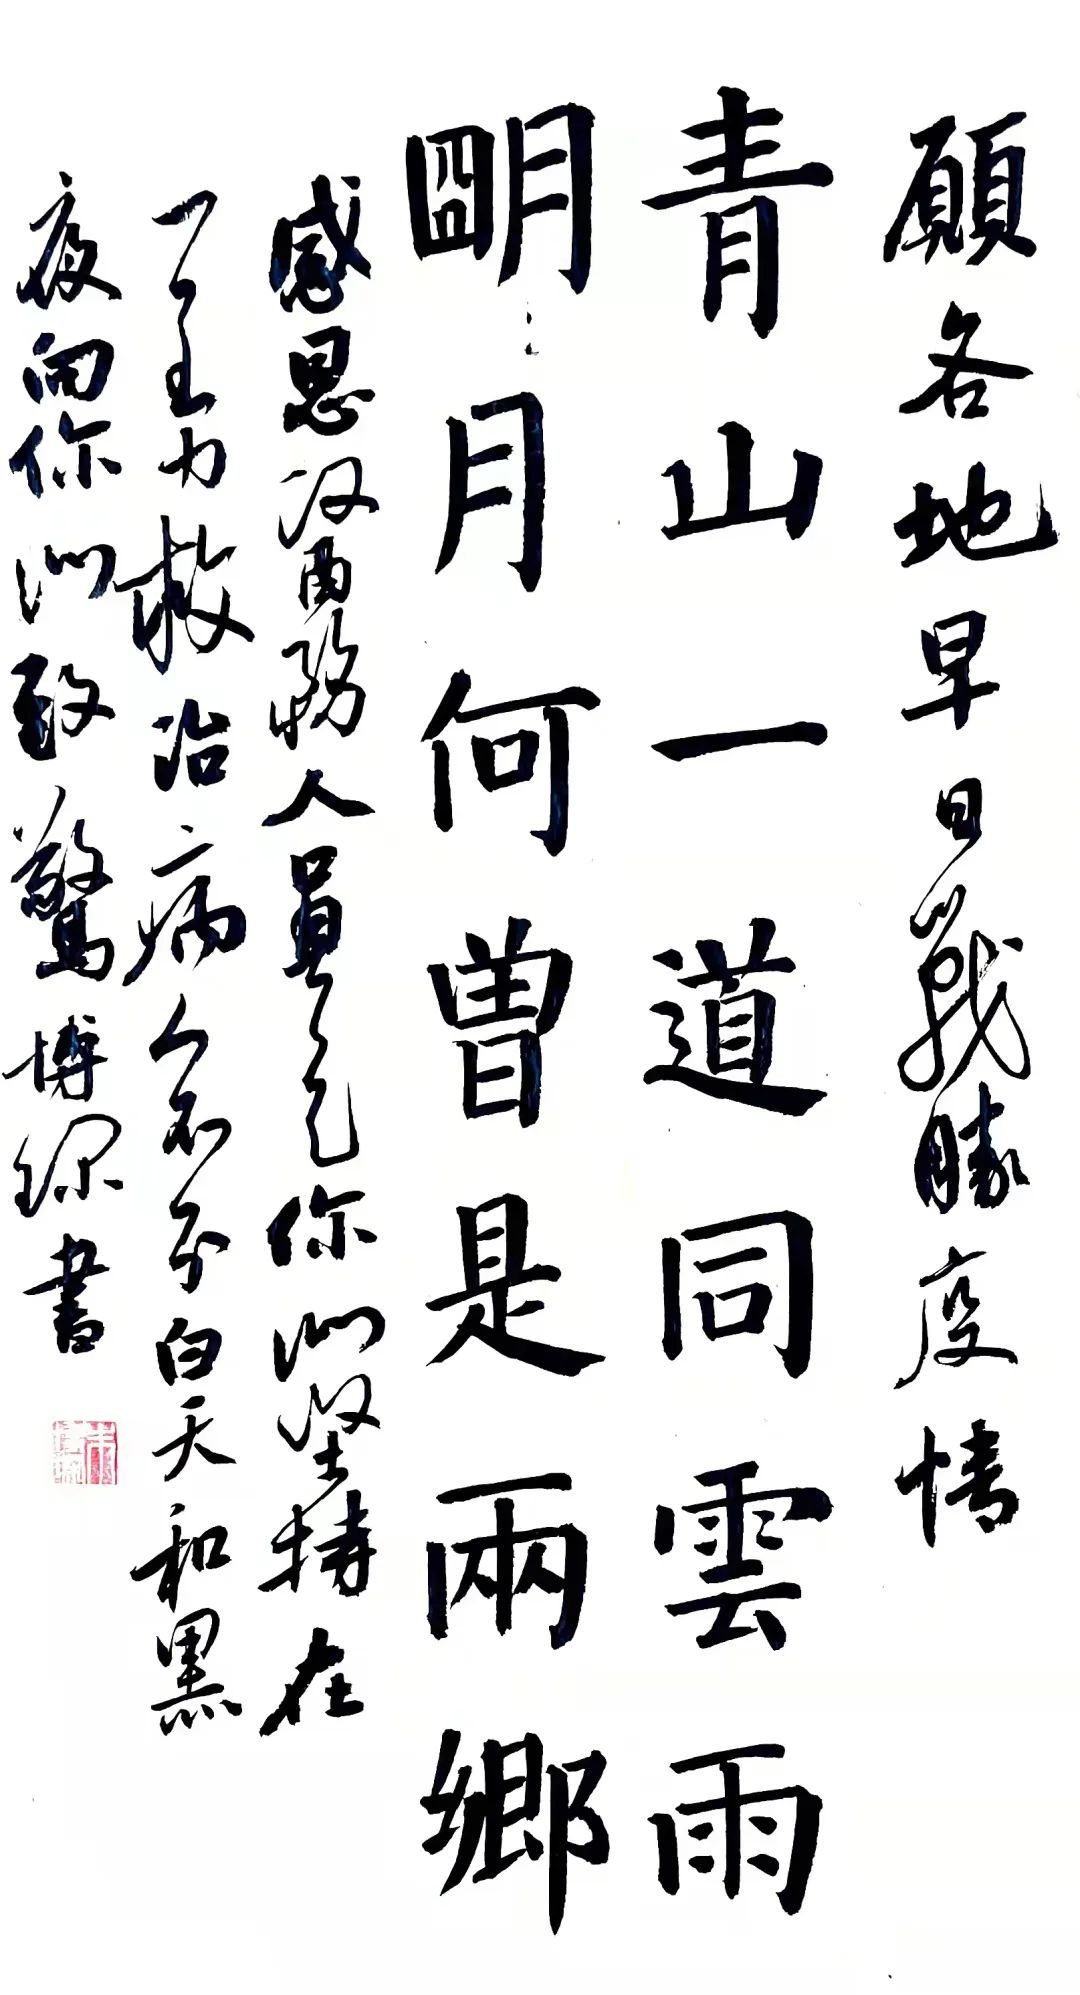 願各地早日戰勝疫情
青山一道同雲雨
朙月何曾是兩鄉
感恩醫務人員是你们坚持在
一全力救治病人不分白天和黑
夜向你们致驚博琛書